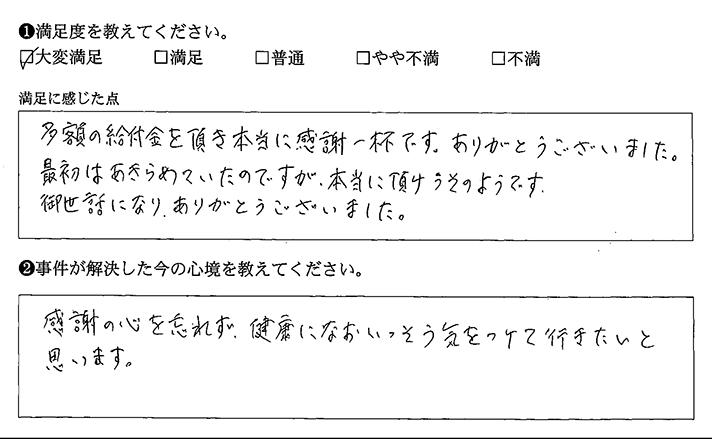 ❶満足度を教えてください。
☑大変満足 □満足 □普通 □やや不満 □不満
満足に感じた点
多額の給付金を頂き本当に感謝一杯です。ありがとうございました。
最初はあきらめていたのですが、本当に頂けうそのようです.
御世話になり、ありがとうございました。
❷事件が解決した今の心境を教えてください。
感謝の心を忘れず、健康になおいっそう気をつけて行きたいと
思います。